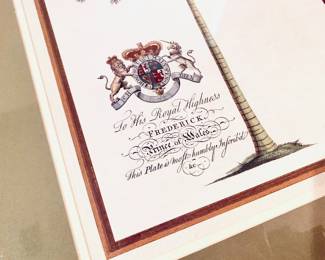 To His Royal Highness
FREDERICK,
Prince of Wales,
This Plate is most humbly Inscribed
&c.